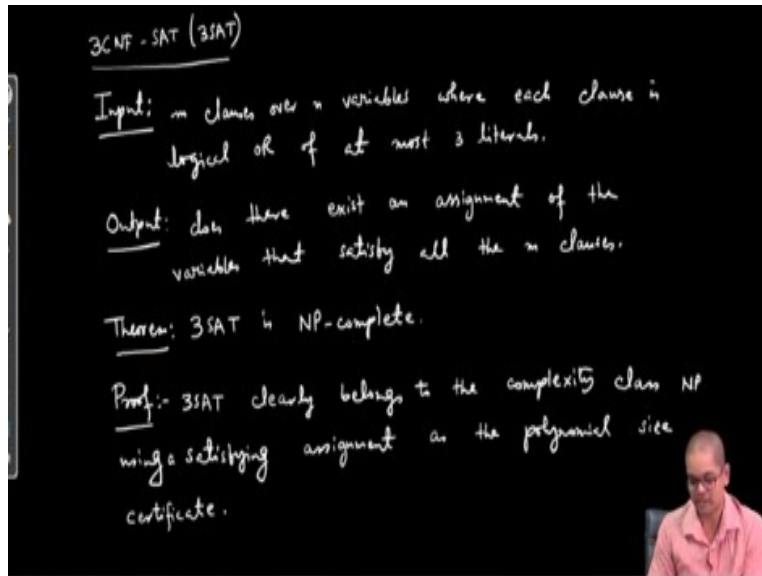 3CNF-SAT (3SAT)
Input: m clauses over n variables where each clause is
logical OR of at most 3 literals.
Output: does there exist an assignment of the
variables that satisfy all the m clauses.
Theorem: 3SAT is NP-complete.
Proof:- 3SAT clearly belongs to the complexity class NP
using a satisfying assignment as the polynomial size
certificate.